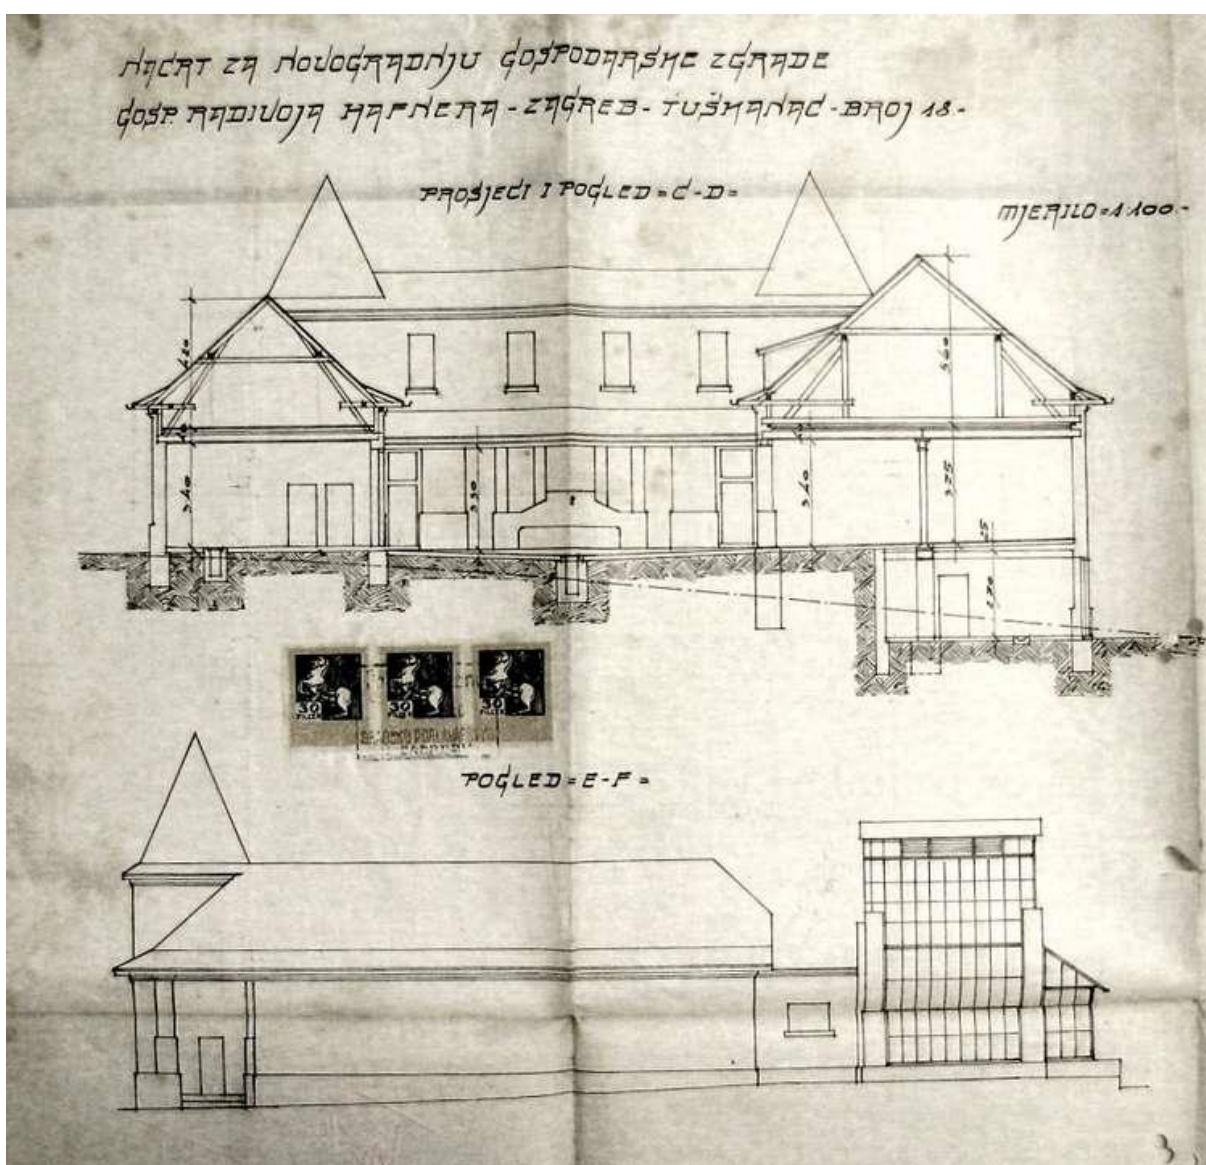 NACRT ZA NOVOGRADNJU GOSPODARSKE ZGRADE
GOSP. RADIVOJA HAFNERA - ZAGREB - TUŠKANAC - BROJ 18.-
PROSJECI I POGLED = C - D =
MJERILO = 1:100.-
4.20
5.60
3.40
3.30
3.40
3.75
25
2.70
30
30
30
POGLED = E - F =
3